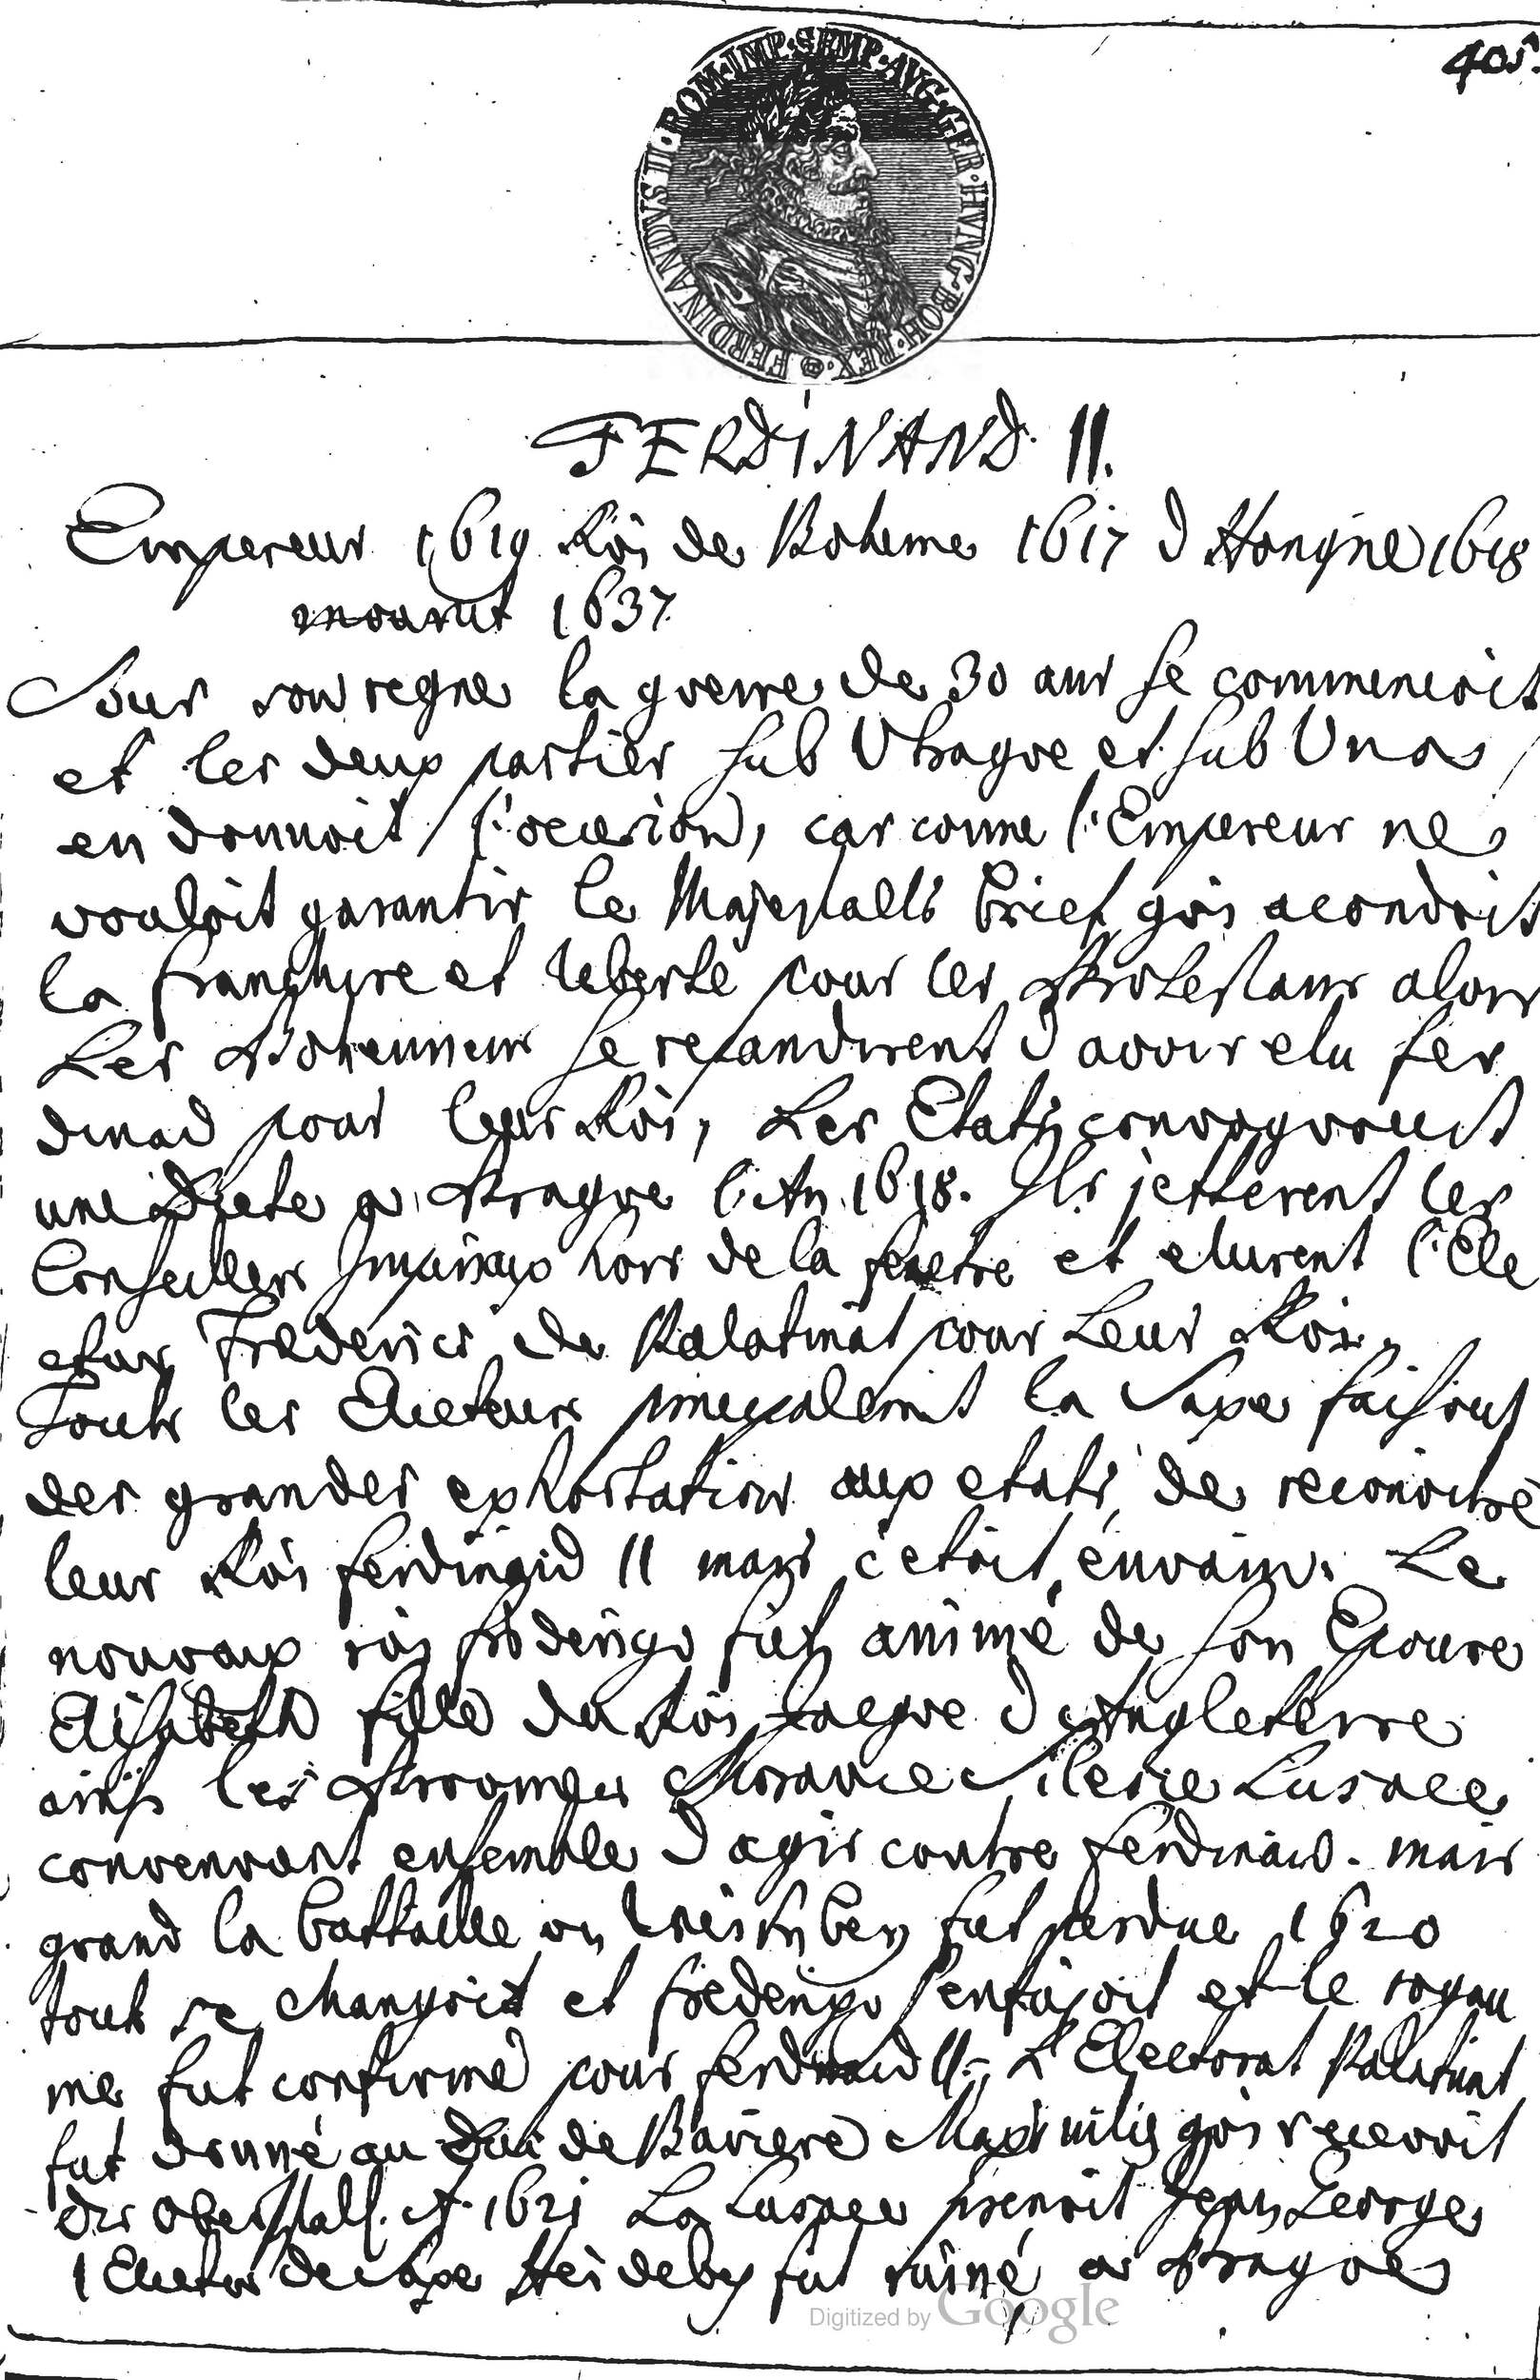 405.
FERDINANDVS II·ROM·IMP·SEMP·AVG·GER·HVNG·BOH·REX
FERDINAND II.
Empereur 1619 Roi de Boheme 1617 d Hongrie 1618
mourut 1637
Sous son regne la guerre de 30 ans se commencoit
et les deux parties sub Utraque et sub Una
en donnoit l'occasion, car comme l'Empereur ne
vouloit garantir le Majestätts Brief qoi acordoit
la franchise et leberte pour les Protestans alors
Les Bohemiens se repandirent d avoir elu fer
dinad pour leur Roi, Les Etats convoqvouit
une Diete a Prague l'An 1618. Ils jetterent les
Conseillers hors de la fenetre et elurent l'Ele
cteur Frederics de Palatinat pour Leur Roi.
Touts les Electeurs principalemt la Saxe faisout
des grandes exhortations aux etats de reconoitre
leur Roi ferdinand II mais c'etoit envain. Le
nouvaux roi fut animé de son Epouse
Elisabeth fille du Roi Jacqve d Angleterre
ainsi les Provinces Moravie Silesie Lusace
convenvant ensemble d agir contre ferdinand. mais
qvand la battaille on fut perdue 1620
tout se changoit et s'enfujoit et le royau
me fut confirmé pour ferdinand II. L'Electorat Palatinat
fut donné au Duc de Baviere qoi recevoit
die Oberpfalf. A. 1621 La Lusace prenoit Jean George
l Electeur de Saxe fut ruiné a Prague
Digitized by Google